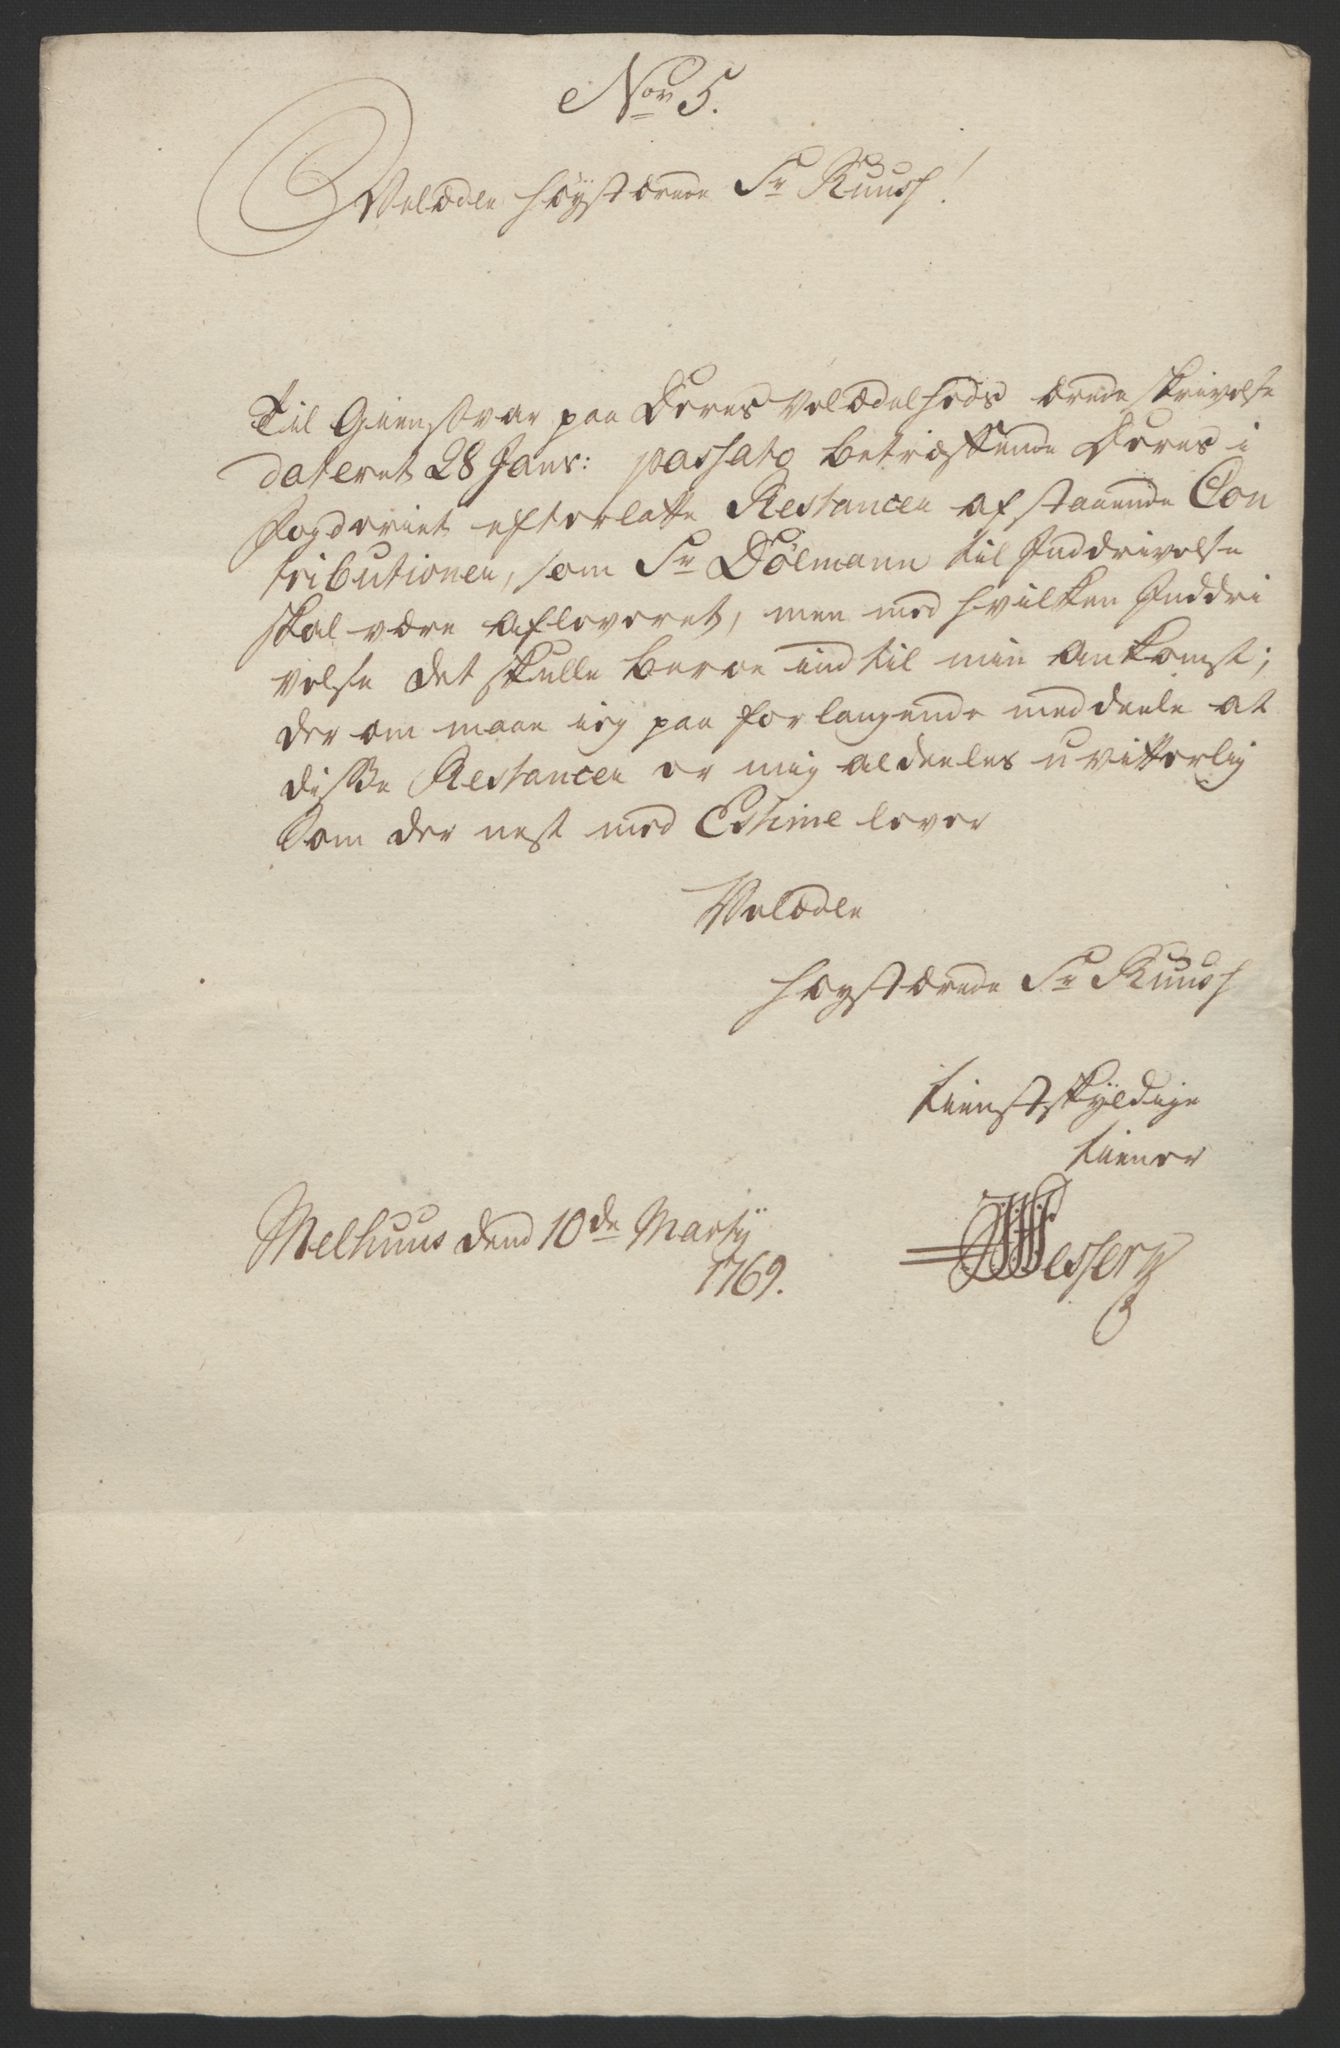 Nor 5.
Velædle Høystærede Sr Kuusch!
Til Giensvar paa Deres Velædelheds ærede skrivelse
dateret 28 Janv: passato betræffende Deres i
Fogderiet efterlatte Restancer af staaende Con
tributioner, som Sr Dølmann til Inddrivelse
skal være afleveret, men med hvilken Inddri
velse det skulle beroe ind til min ankomst;
der om maae ieg paa forlangende meddeele at
disse Restancer er mig aldeeles uvitterlig
Som der nest med Estime lever
Velædle
Høystærede Sr Kuusch
tienstskyldige
tiener
Melhuus dend 10de Martÿ
1769.